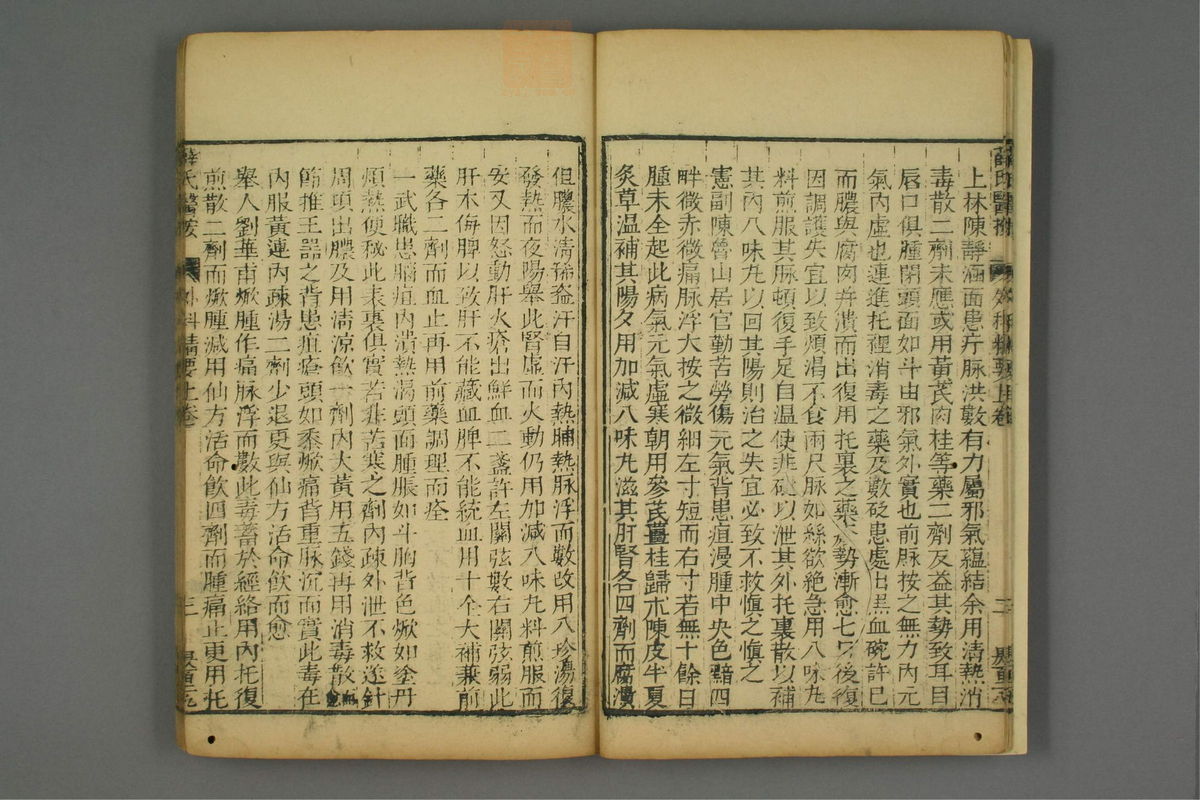 上林陳靜涵面患疔脉洪數有力屬邪氣蘊結余用清熱消
毒散二劑未應或用黃芪肉桂等藥二劑反益其勢致耳目
唇口俱腫閉頭面如斗由邪氣外實也前脉按之無力內元
氣內虛也連進托裡消毒之藥及數砭患處出黑血碗許已
而膿與腐肉并潰而出復用托裏之藥 勢漸愈七日後復
因調護失宜以致煩渴不食兩尺脉如絲欲絶急用八味丸
料煎服其脉頓復手足自温使非砭以泄其外托裏散以補
其內八味丸以回其陽則治之失宜必致不救慎之慎之
憲副陳魯山居官勤苦勞傷元氣背患疽漫腫中央色黯四
畔微赤微痛脉浮大按之微細左寸短而右寸若無十餘日
腫未全起此病氣元氣虛寒朝用參芪薑桂歸朮陳皮半夏
炙草温補其陽夕用加減八味丸滋其肝腎各四劑而腐潰
但膿水清稀盜汗自汗內熱晡熱脉浮而數改用八珍湯復
發熱而夜陽舉此腎虛而火動仍用加減八味丸料煎服而
安又因怒動肝火瘡出鮮血二盞許左關弦數右關弦弱此
肝木侮脾以致肝不能藏血脾不能統血用十全大補兼前
藥各二劑而血止再用前藥調理而痊
一武職患腦疽內潰熱渴頭面腫脹如斗胸背色焮如塗丹
煩熱便秘此表裏俱實若非苦寒之劑內疎外泄不救遂針
周頭出膿及用清涼飲一劑內大黃用五錢再用消毒散
節推王器之背患疽瘡頭如黍焮痛背重脉沉而實此毒在
內服黃連內疎湯二劑少退更與仙方活命飲而愈
舉人劉華甫焮腫作痛脉浮而數此毒蓄於經絡用內托復
煎散二劑而焮腫減用仙方活命飲四劑而腫痛止更用托
薛氏醫按 外科精要上卷 三